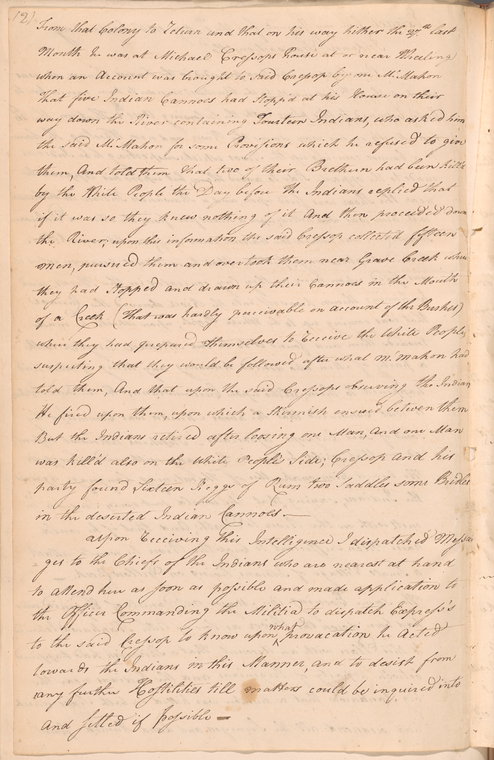 (2)
From that Colony to Return and that on his way hither the 27th last
Month he was at Michael Cressops House at or near Weeling
when an Account was brought to said Cressop by one McMahon
That five Indian Cannoes had stopp'd at his House on their
way down the River containing Fourteen Indians, who asked him
the said McMahon for some Provisions which he refused to give
them, And told them that two of their Brethern had been kill'd
by the White People the Day before the Indians replied that
if it was so they knew nothing of it And then proceeded down
the River; upon this information the said Cressop collected fifteen
men, pursued them and overtook them near Grave Creek when
they had Stopped and drawn up their Cannoes in the Mouth
of a Creek (That was hardly perceivable on account of the Bushes)
where they had prepared themselves to Receive the White People,
suspecting that they would be followed after what McMahon had
told them, And that upon the said Cressops the Indians
He fired upon them, upon which a Skirmish ensued between them
But the Indians retired after loosing one Man, and one Man
was kill'd also on the White People's Side; Cressop and his
party found Sixteen Keggs of Rum two Saddles some Bridles
in the deserted Indian Cannoes. —
Upon Receiving this Intelligence I dispatched Messa
-ges to the Chiefs of the Indians who are nearest at hand
to attend here as soon as possible and made application to
the Officer Commanding the Militia to dispatch Express's
to the said Cressop to know upon what provocation he Acted
towards the Indians in this Manner and to desist from
any further Hostilities till matters could be inquired into
And settled if Possible —